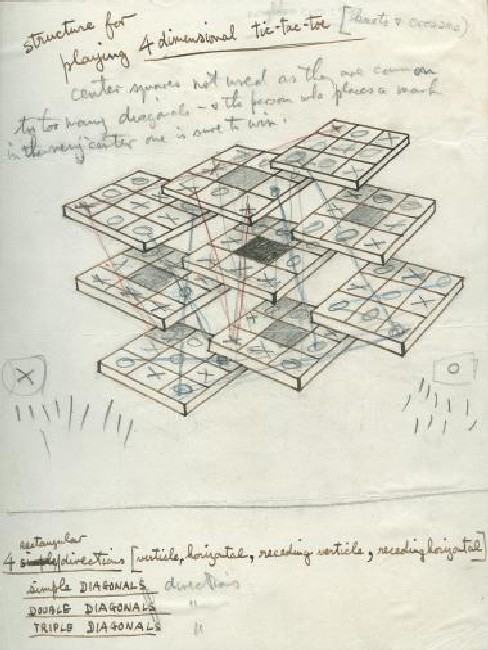 structure for
playing 4 dimensional tic-tac-toe [
center spaces not used as they are common
to too many diagonals - & the person who places a mark
in the very center one is sure to win.
X
O
rectangular
4 directions [verticle, horizontal, receding verticle, receding horizontal]
simple DIAGONALS directions
DOUBLE DIAGONALS "
TRIPLE DIAGONALS "